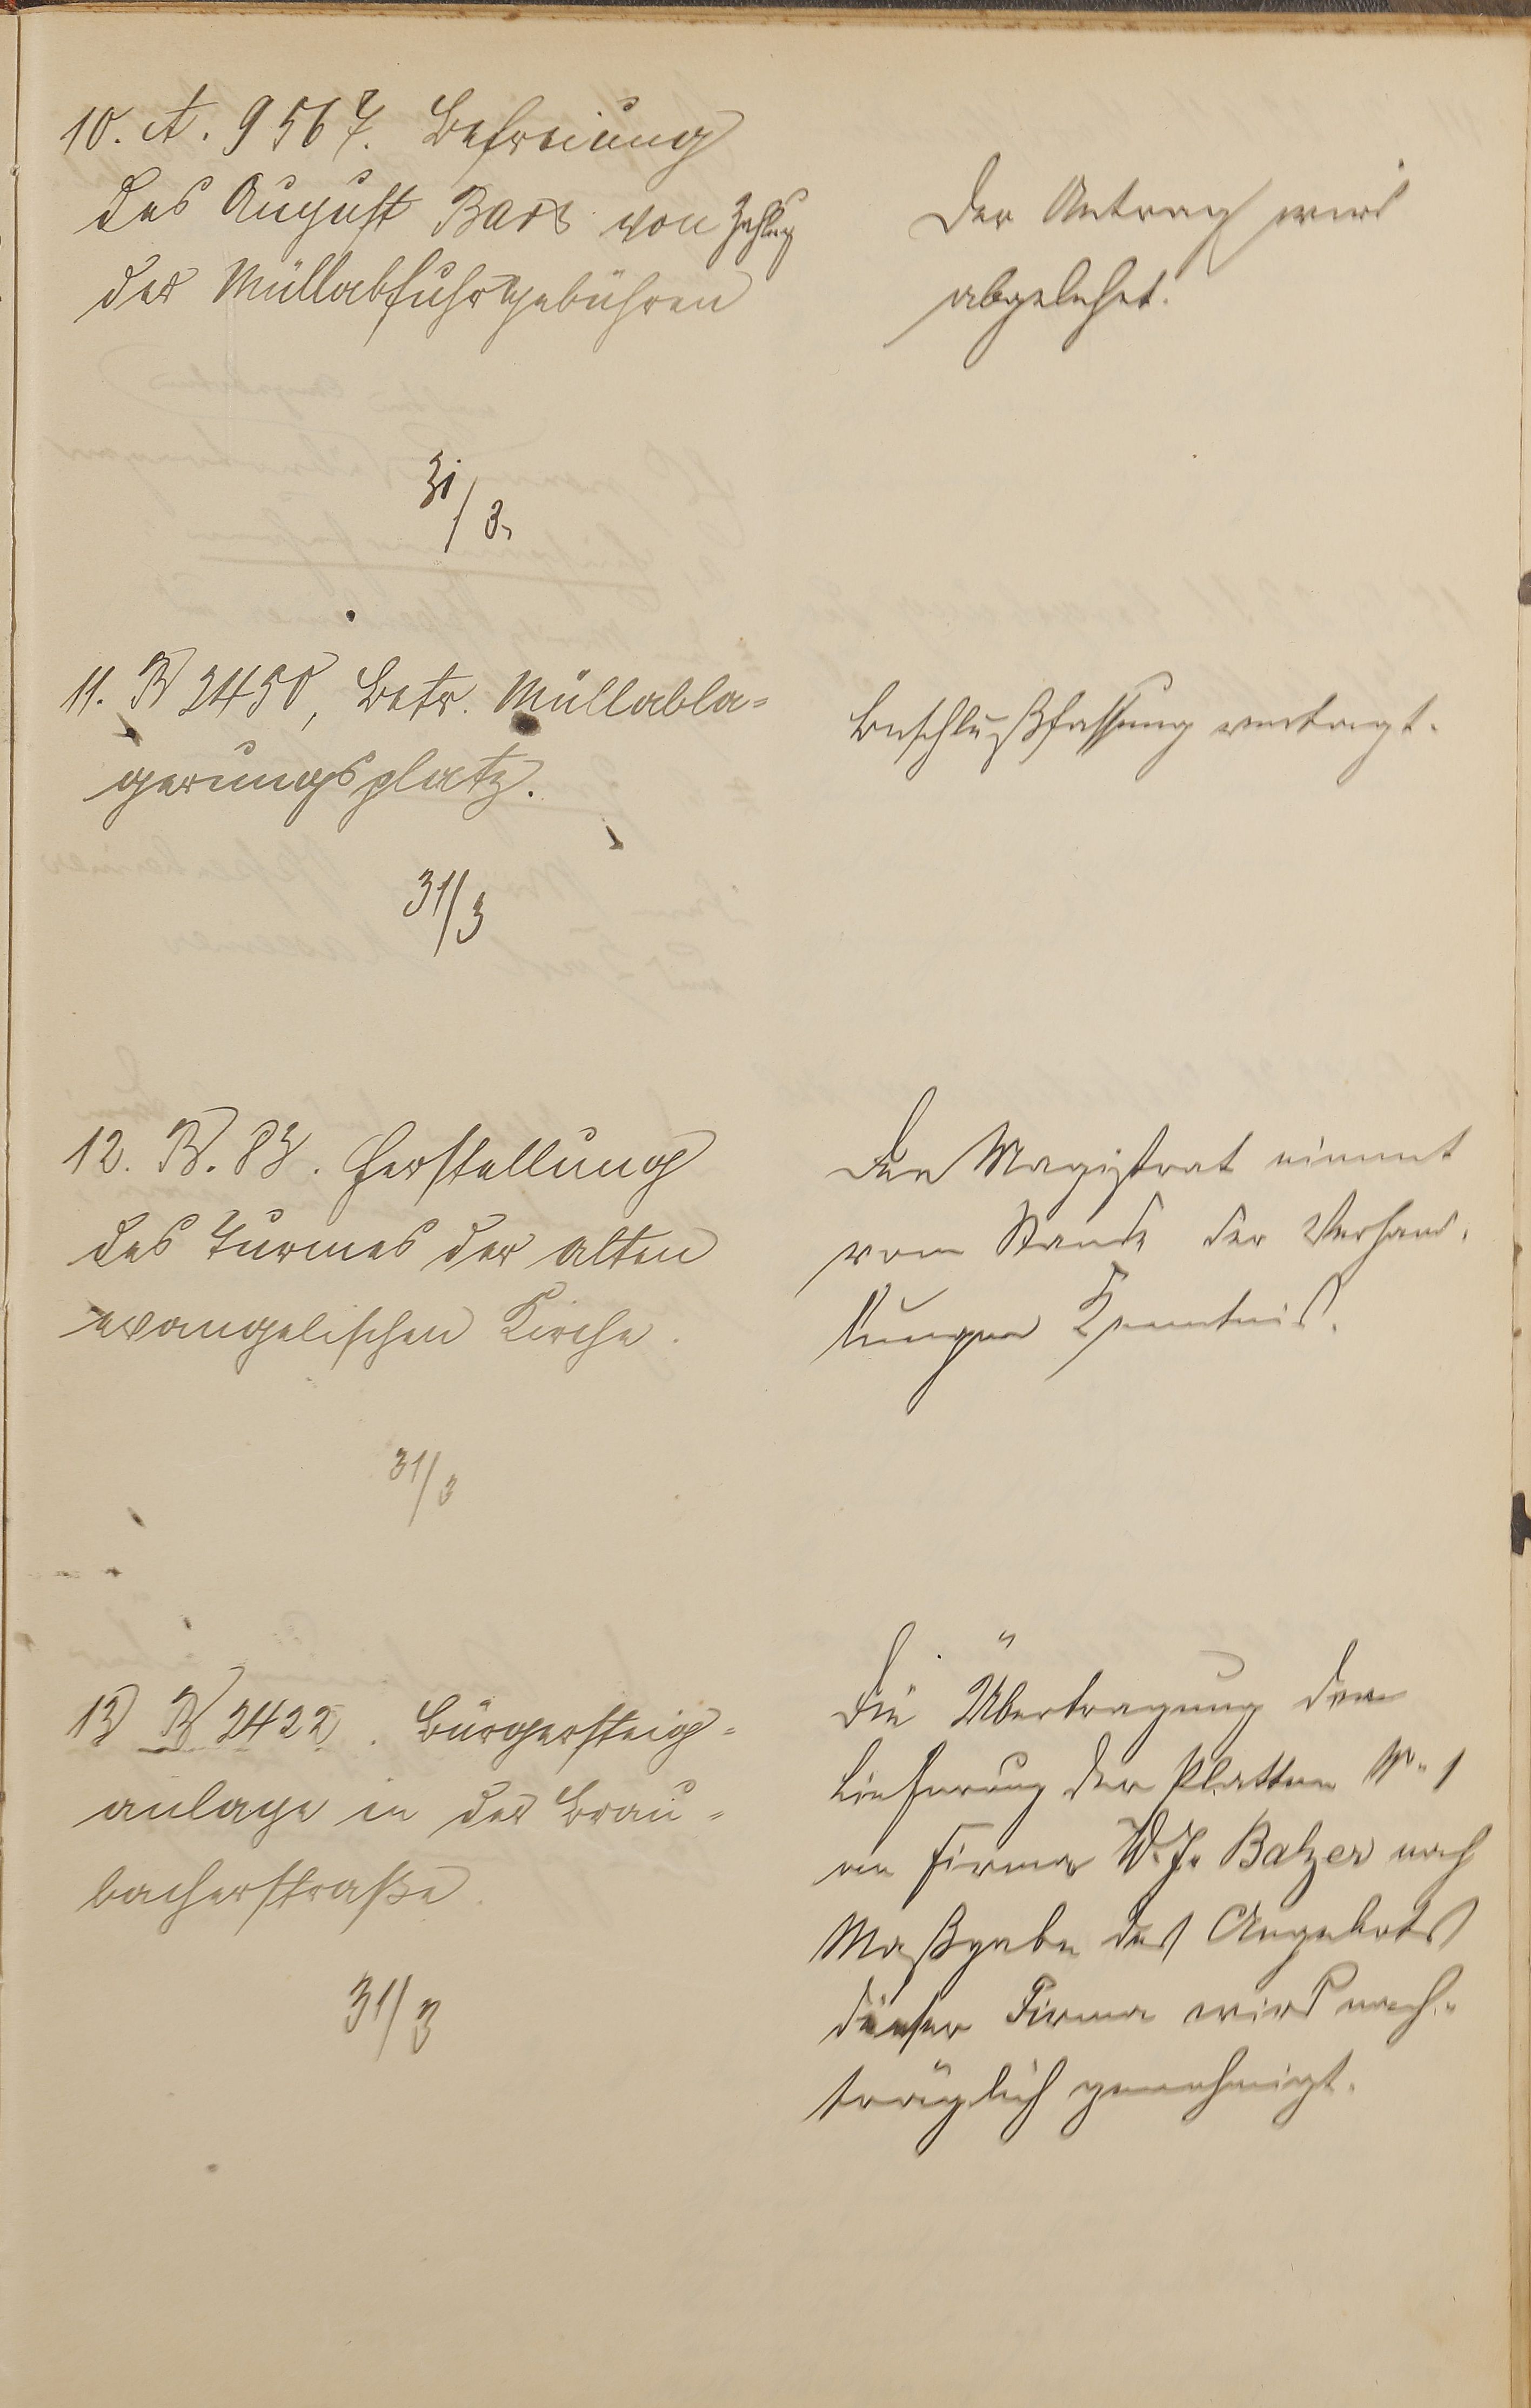 10. A. 9567. Befreiung
des August Bars von Zahlung
der Müllabfuhrgebühren
Der Antrag wird
abgelehnt.
31/3.
11. B 2450, Betr. Müllabla-
gerungsplatz.
Beschlußfassung vertagt.
31/3
12. B. 83. Herstellung
des Turmes der alten
evangelischen Kirche.
Der Magistrat nimmt
vom Stande der Verhand-
lungen Kenntnis.
31/3
13 B 2422. Bürgersteig-
anlage in der Brau-
bacherstraße.
Die Übertragung der
Lieferung der Platten No. 1
an Firma W. J. Balzer nach
Maßgabe des Angebots
dieser Firma wird nach-
träglich genehmigt.
31/3